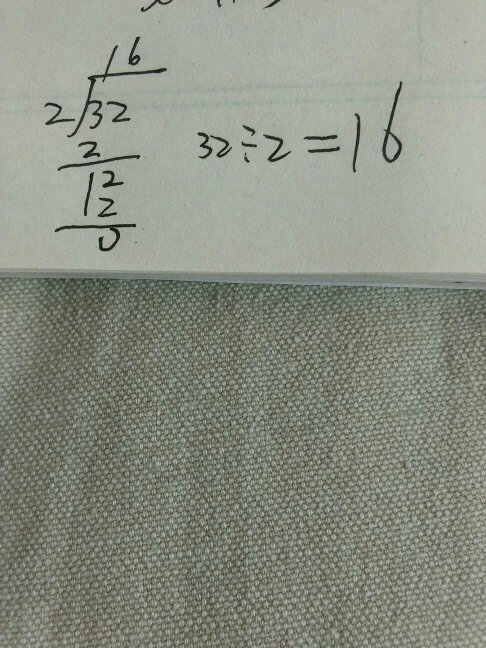 16
2/32
2
12
12
0
32÷2=16